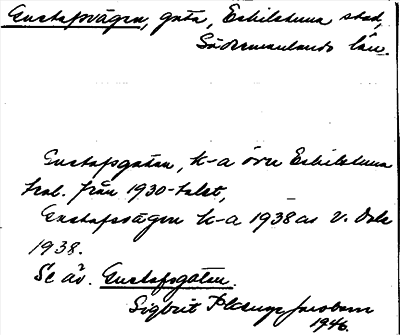 Gustafsvägen, gata, Eskilstuna stad,
Södermanlands län.
Gustafsgatan, k-a över Eskilstuna
trol. från 1930-talet,
Gustafsvägen k-a 1938 av V. Dals
1938.
Se äv. Gustafsgatan.
Sigbrit Plænge Jacobson
1946.